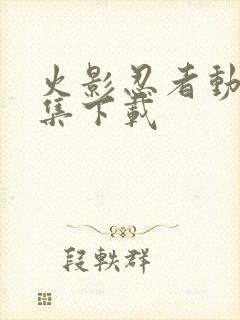 火影忍者動
集下載
段軼群